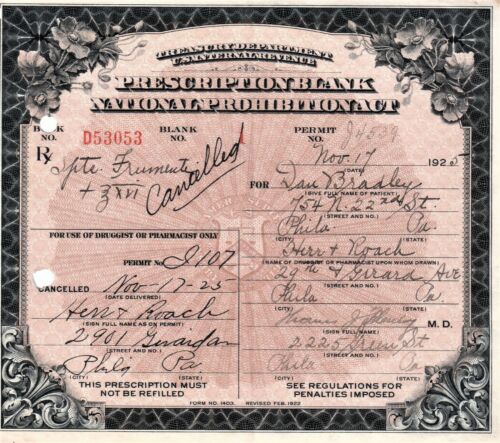 TREASURY DEPARTMENT
U.S. INTERNAL REVENUE
PRESCRIPTION BLANK
NATIONAL PROHIBITION ACT
BOOK NO. D53053 BLANK NO. 1 PERMIT NO. J4539
Rx
Spts. Frumenti
Cancelled
Nov. 17 1925
FOR Dan Bradley
(GIVE FULL NAME OF PATIENT)
754 N. 22nd St.
(STREET AND NO.)
Phila Pa.
(CITY) (STATE)
Herr & Roach
(NAME OF DRUGGIST OR PHARMACIST UPON WHOM DRAWN)
29th & Girard Ave
(STREET AND NO.)
Phila Pa.
(CITY) (STATE)
M. D.
(SIGN FULL NAME)
2225 St
(STREET AND NO.)
Phila Pa.
(CITY) (STATE)
SEE REGULATIONS FOR
PENALTIES IMPOSED
FOR USE OF DRUGGIST OR PHARMACIST ONLY
PERMIT NO. J107
CANCELLED Nov-17-25
(DATE DELIVERED)
Herr & Roach
(SIGN FULL NAME AS ON PERMIT)
2901 Girard av
(STREET AND NO.)
Phila Pa
(CITY) (STATE)
THIS PRESCRIPTION MUST
NOT BE REFILLED
FORM NO. 1403. REVISED FEB. 1922